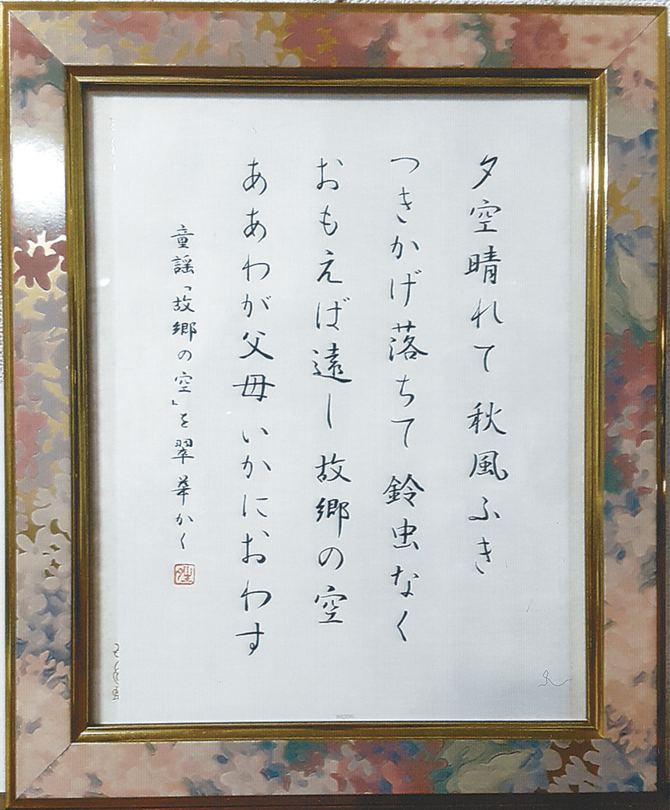 夕空晴れて 秋風ふき
つきかげ落ちて 鈴虫なく
おもえば遠し 故郷の空
ああわが父母 いかにおわす
童謡「故郷の空」を 翠華かく